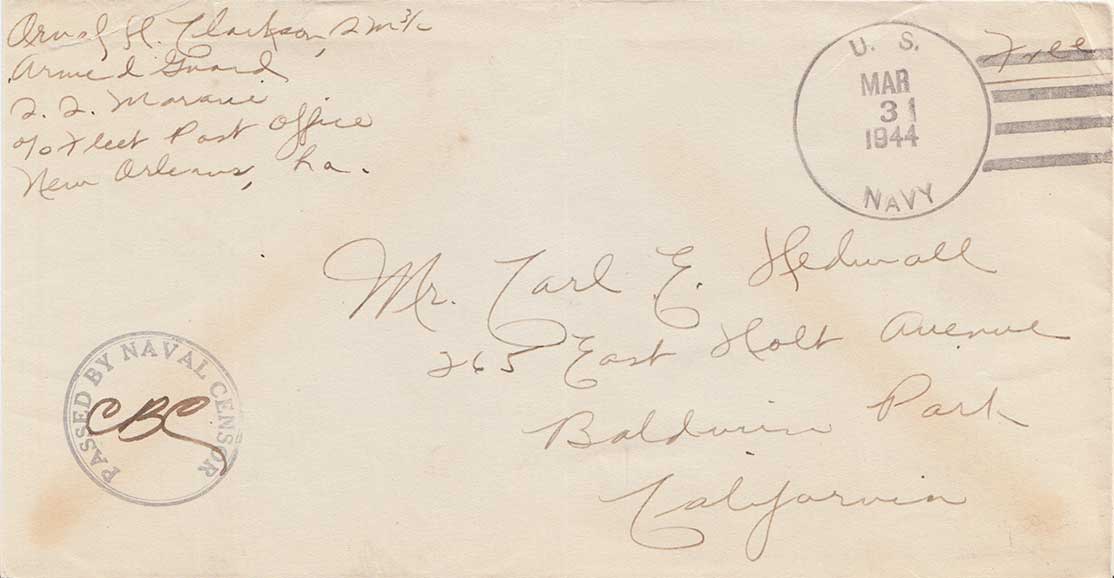 H. Clarkson, SM 3/c
Armed Guard
c/o Fleet Post Office
New Orleans, La.
U. S.
MAR
31
1944
NAVY
Free
Mr. Carl E. Hedwall
265 East Holt Avenue
Baldwin Park
California
PASSED BY NAVAL CENSOR
CBC